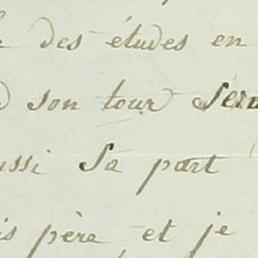 des études en
son tour
sa part
père, et je